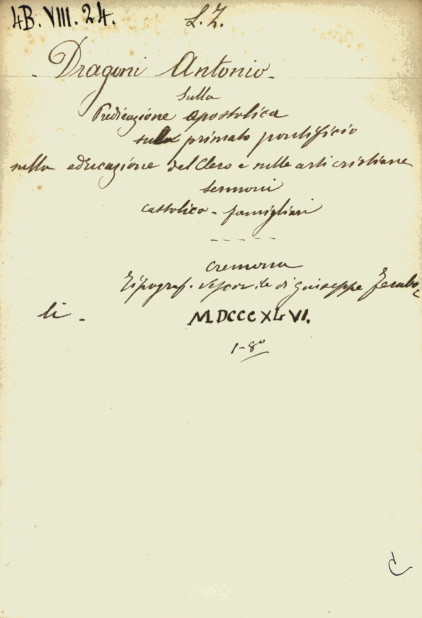 4B. VIII. 24.
S. Z.
Dragoni Antonio
Sulla
Predicazione apostolica
sul primato pontificio
nella educazione del Clero e nelle arti cristiane
sermoni
cattolico-famigliari
Cremona
Tipograf. Vescov.le di Giuseppe
MDCCCXLVI.
1-8º
C